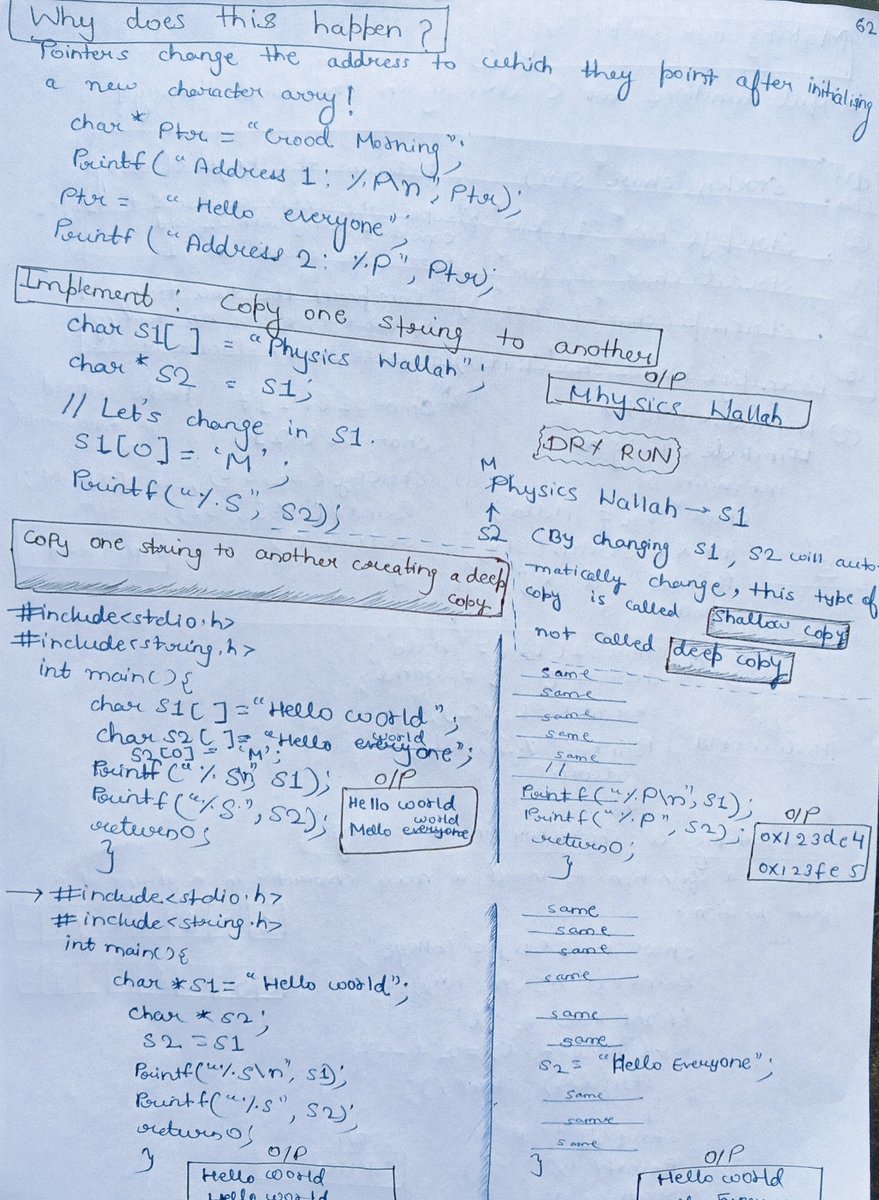 62
Why does this happen?
Pointers change the address to which they point after initialising
a new character arry!
char* Ptr = "Good Morning";
Printf("Address 1: %P\n", Ptr);
Ptr = "Hello everyone";
Printf ("Address 2: %P", Ptr);
Implement : Copy one string to another
char S1[ ] = "Physics Wallah";
char* S2 = S1;
// Let's change in S1.
S1[0] = 'M';
Printf("%.S", S2);
O/P
Mhysics Wallah
DRY RUN
M
Physics Wallah → S1
↑
S2 (By changing S1, S2 will auto-
matically change, this type of
copy is called shallow copy
not called deep copy
Copy one string to another creating a deep
copy
#include<stdio.h>
#include<string.h>
int main(){
char S1[ ]="Hello world";
char S2[ ]= "Hello everyone";
world
S2[0] = 'M';
Printf ("%.S\n", S1);
Printf("%.S", S2);
return0;
}
O/P
Hello world
world
Mello everyone
same
same
same
same
same
//
Printf("%P\n", S1);
Printf("%.P", S2);
return0;
}
O/P
0x123de4
0x123fe5
→ #include<stdio.h>
# include<string.h>
int main(){
char *S1= "Hello world";
char * S2;
S2 = S1
Printf("%.S\n", S1);
Printf("%.S", S2);
return0;
}
O/P
Hello world
Hello world
same
same
same
same
same
same
S2= "Hello Everyone";
same
same
same
}
O/P
Hello world